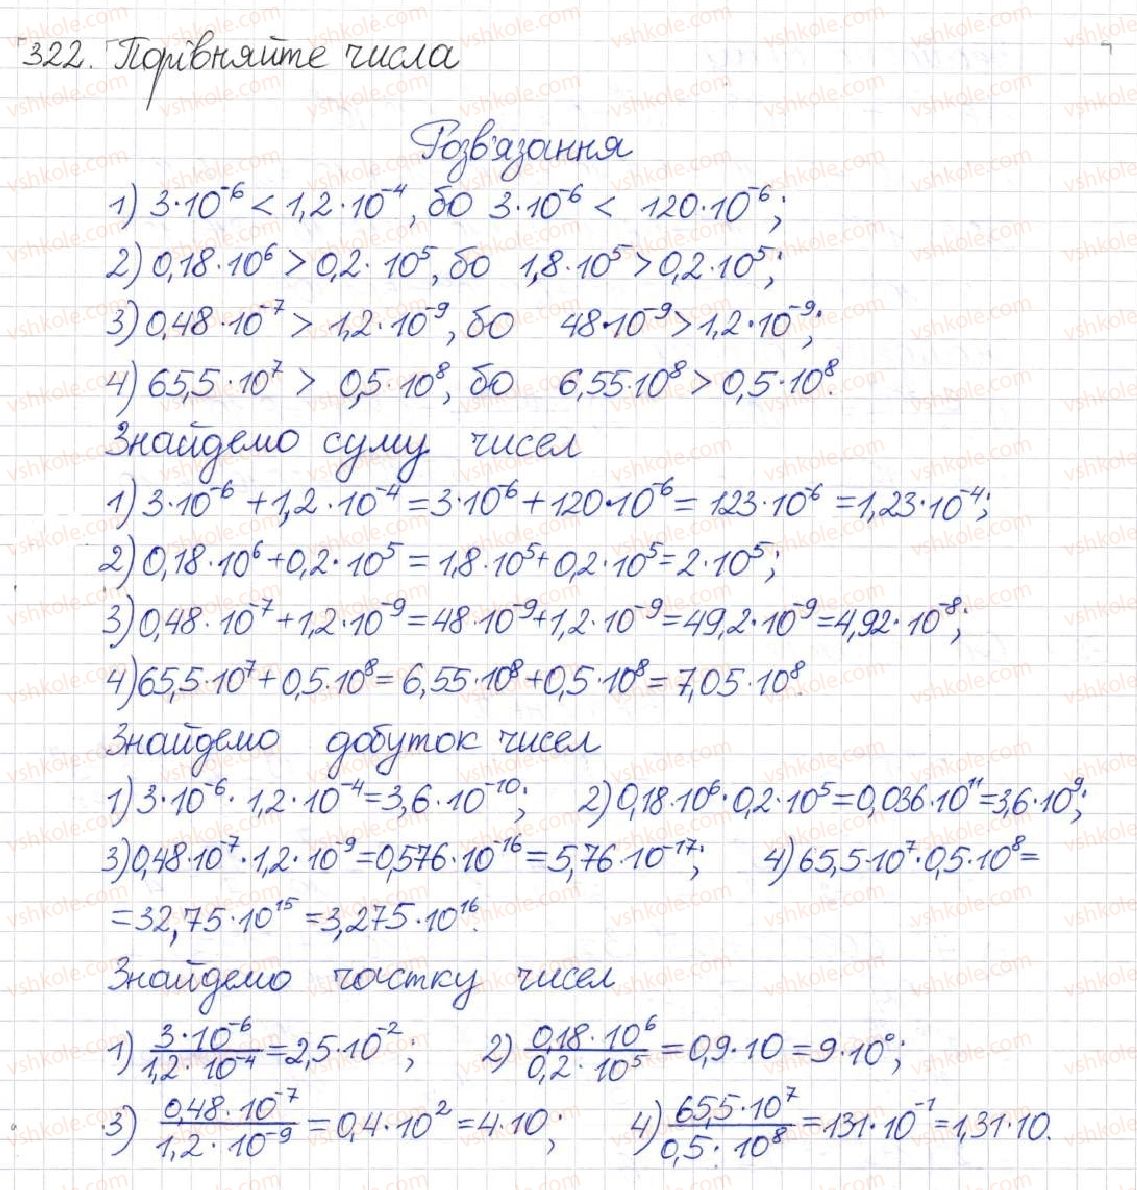 322. Порівняйте числа
Розв'язання
1) 3·10⁻⁶ < 1,2·10⁻⁴, бо 3·10⁻⁶ < 120·10⁻⁶;
2) 0,18·10⁶ > 0,2·10⁵, бо 1,8·10⁵ > 0,2·10⁵;
3) 0,48·10⁻⁷ > 1,2·10⁻⁹, бо 48·10⁻⁹ > 1,2·10⁻⁹;
4) 65,5·10⁷ > 0,5·10⁸, бо 6,55·10⁸ > 0,5·10⁸.
Знайдемо суму чисел
1) 3·10⁻⁶ + 1,2·10⁻⁴ = 3·10⁻⁶ + 120·10⁻⁶ = 123·10⁻⁶ = 1,23·10⁻⁴;
2) 0,18·10⁶ + 0,2·10⁵ = 1,8·10⁵ + 0,2·10⁵ = 2·10⁵;
3) 0,48·10⁻⁷ + 1,2·10⁻⁹ = 48·10⁻⁹ + 1,2·10⁻⁹ = 49,2·10⁻⁹ = 4,92·10⁻⁸;
4) 65,5·10⁷ + 0,5·10⁸ = 6,55·10⁸ + 0,5·10⁸ = 7,05·10⁸.
Знайдемо добуток чисел
1) 3·10⁻⁶ · 1,2·10⁻⁴ = 3,6·10⁻¹⁰; 2) 0,18·10⁶ · 0,2·10⁵ = 0,036·10¹¹ = 3,6·10⁹;
3) 0,48·10⁻⁷ · 1,2·10⁻⁹ = 0,576·10⁻¹⁶ = 5,76·10⁻¹⁷; 4) 65,5·10⁷ · 0,5·10⁸ =
= 32,75·10¹⁵ = 3,275·10¹⁶.
Знайдемо частку чисел
1) 3·10⁻⁶ / 1,2·10⁻⁴ = 2,5·10⁻²; 2) 0,18·10⁶ / 0,2·10⁵ = 0,9·10 = 9·10⁰;
3) 0,48·10⁻⁷ / 1,2·10⁻⁹ = 0,4·10² = 4·10; 4) 65,5·10⁷ / 0,5·10⁸ = 131·10⁻¹ = 1,31·10.